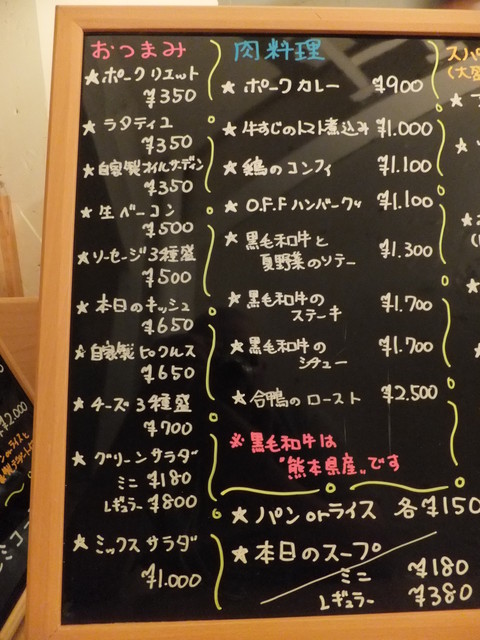 おつまみ
★ポークリエット
¥350
★ラタティユ
¥350
★自家製オイルサーディン
¥350
★生ベーコン
¥500
★ソーセージ3種盛
¥500
★本日のキッシュ
¥650
★自家製ピクルス
¥650
★チーズ3種盛
¥700
★グリーンサラダ
ミニ ¥180
レギュラー ¥800
★ミックスサラダ
¥1.000
肉料理
★ポークカレー ¥900
★牛すじのトマト煮込み ¥1.000
★鶏のコンフィ ¥1.100
★O.F.Fハンバーグ ¥1.100
★黒毛和牛と
夏野菜のソテー ¥1.300
★黒毛和牛の
ステーキ ¥1.700
★黒毛和牛の
シチュー ¥1.700
★合鴨のロースト ¥2.500
※黒毛和牛は
"熊本県産"です
★パンorライス 各¥150
★本日のスープ
ミニ ¥180
レギュラー ¥380
スパ
¥2,000